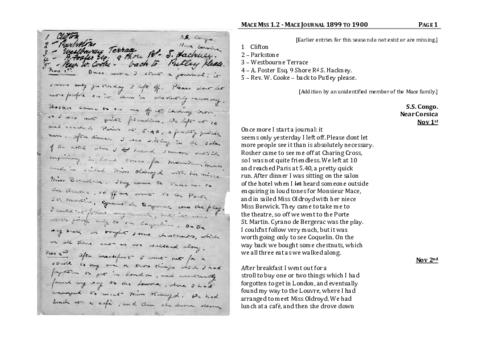 1 Clifton
2 Parkstone
3 Westbourne Terrace
4 A Foster Esq. 9 Shore Rd S. Hackney.
5 Rev. W. Cooke back to Putley Please.
S.S. Congo.
Near Corsica
Nov 1st Once more I start a journal: it
seems only yesterday I left off. Please dont let
more people see it than is absolutely necessary.
Rosher came to see me off at Charing Cross,
so I was not quite friendless. We left at 10
and reached Paris at 5.40, a pretty quick
run. After dinner I was sitting on the salon
of the hotel when I heard someone outside
enquiring in loud tones for Monsieur Mace,
and in sailed Miss Oldroyd with her niece
Miss Berwick. They came to take me to
the theatre, so off we went to the Porte
St. Martin. Cyrano de Bergerac was the play.
I couldst follow very much, but it was
worth going only to see Coquelin. On the
way back we bought some chestnuts, which
we all three eat as we walked along.
Nov 2nd. After breakfast I went out for a
stroll to buy one or two things which I had
forgotten to get in London, and eventually
found my way to the Louvre, where I had
arranged to meet Miss Oldroyd. We had
lunch at a café, and then she drove down
MACE MSS 1.2 - MACE JOURNAL 1899 TO 1900 PAGE 1
[Earlier entries for this season do not exist or are missing.]
1 Clifton
2 – Parkstone
3 – Westbourne Terrace
4 – A. Foster Esq. 9 Shore Rd S. Hackney.
5 – Rev. W. Cooke – back to Putley Please.
[Addition by an unidentified member of the Mace family.]
S.S. Congo.
Near Corsica
Nov 1st
Once more I start a journal: it
seems only yesterday I left off. Please dont let
more people see it than is absolutely necessary.
Rosher came to see me off at Charing Cross,
so I was not quite friendless. We left at 10
and reached Paris at 5.40, a pretty quick
run. After dinner I was sitting on the salon
of the hotel when I heard someone outside
enquiring in loud tones for Monsieur Mace,
and in sailed Miss Oldroyd with her niece
Miss Berwick. They came to take me to
the theatre, so off we went to the Porte
St. Martin. Cyrano de Bergerac was the play.
I couldst follow very much, but it was
worth going only to see Coquelin. On the
way back we bought some chestnuts, which
we all three eat as we walked along.
Nov 2nd
After breakfast I went out for a
stroll to buy one or two things which I had
forgotten to get in London, and eventually
found my way to the Louvre, where I had
arranged to meet Miss Oldroyd. We had
lunch at a café, and then she drove down